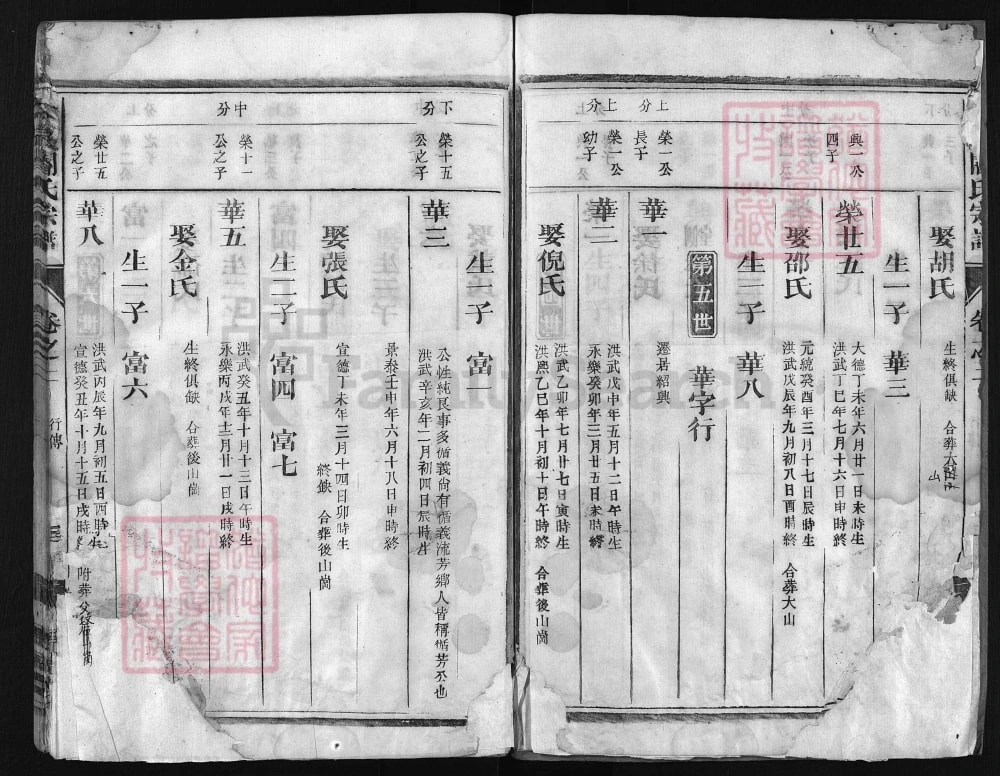 娶胡氏
生終俱缺 合葬大
山
生一子 華三
興一公
四子
榮廿五
大德丁未年六月廿一日未時生
洪武丁巳年七月十六日申時終
娶邵氏
元統癸酉年三月十七日辰時生
洪武戊辰年九月初八日酉時終 合葬大山
生一子 華八
第五世 華字行
上分
榮一公
長子
華一
遷居紹興
上分
榮一公
幼子
華二
洪武戊申年五月十二日午時生
永樂癸卯年三月廿五日未時終
娶倪氏
洪武乙卯年七月廿七日寅時生
洪熙乙巳年十月初十日午時終 合葬後山崗
生一子 富一
下分
榮十五
公之子
華三
公性純良事多循義尚有循義流芳鄉人皆稱循芳公也
洪武辛亥年二月初四日辰時生
景泰壬申年六月十八日申時終
娶張氏
宣德丁未年三月十四日卯時生
終缺 合葬後山崗
生二子 富四 富七
中分
榮十一
公之子
華五
洪武癸丑年十月十三日午時生
永樂丙戌年十二月廿一日戌時終
娶金氏
生終俱缺 合葬後山崗
生一子 富六
榮廿五
公之子
華八
洪武丙辰年九月初五日酉時生
宣德癸丑年十月十五日戌時終 附葬父
氏宗譜
卷之二
行傳